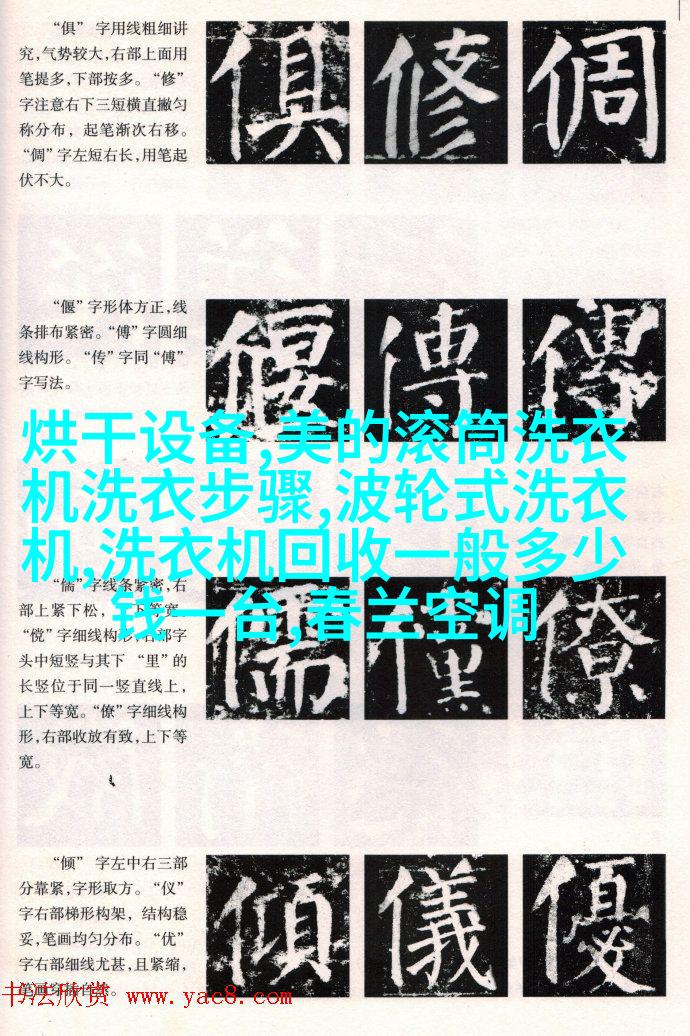 “俱” 字用线粗细讲
究,气势较大,右部上面用
笔提多,下部按多。“修”
字注意右下三短横直撇匀
称分布，起笔渐次右移。
“倜”字左短右长,用笔起
伏不大。
俱 修 倜
“偃”字形体方正,线
条排布紧密。“傅”字圆细
线构形。“传”字同“傅”
字写法。
偃 傅 傳
烘干设备,美的滚筒洗衣
机洗衣步骤,波轮式洗衣
机,洗衣机回收一般多少
钱一台,春兰空调
“儒”字线条紧密,右
部上紧下松，上下等宽。
字细线构形,右部字
头中短竖与其下“里”的
长竖位于同一竖直线上，
上下等宽。“僚”字细线构
形,右部收放有致,上下等
宽。
儒 僚
“倾” 字左中右三部
分靠紧,字形取方。“仪”
字右部梯形构架，结构稳
妥,笔画均匀分布。“优”
字右部细线尤甚,且紧缩，
笔画穿插
傾 儀 優
书法欣赏 www.yac8.com